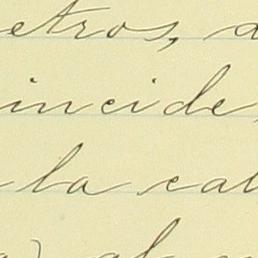 etros, a
incide
la cal